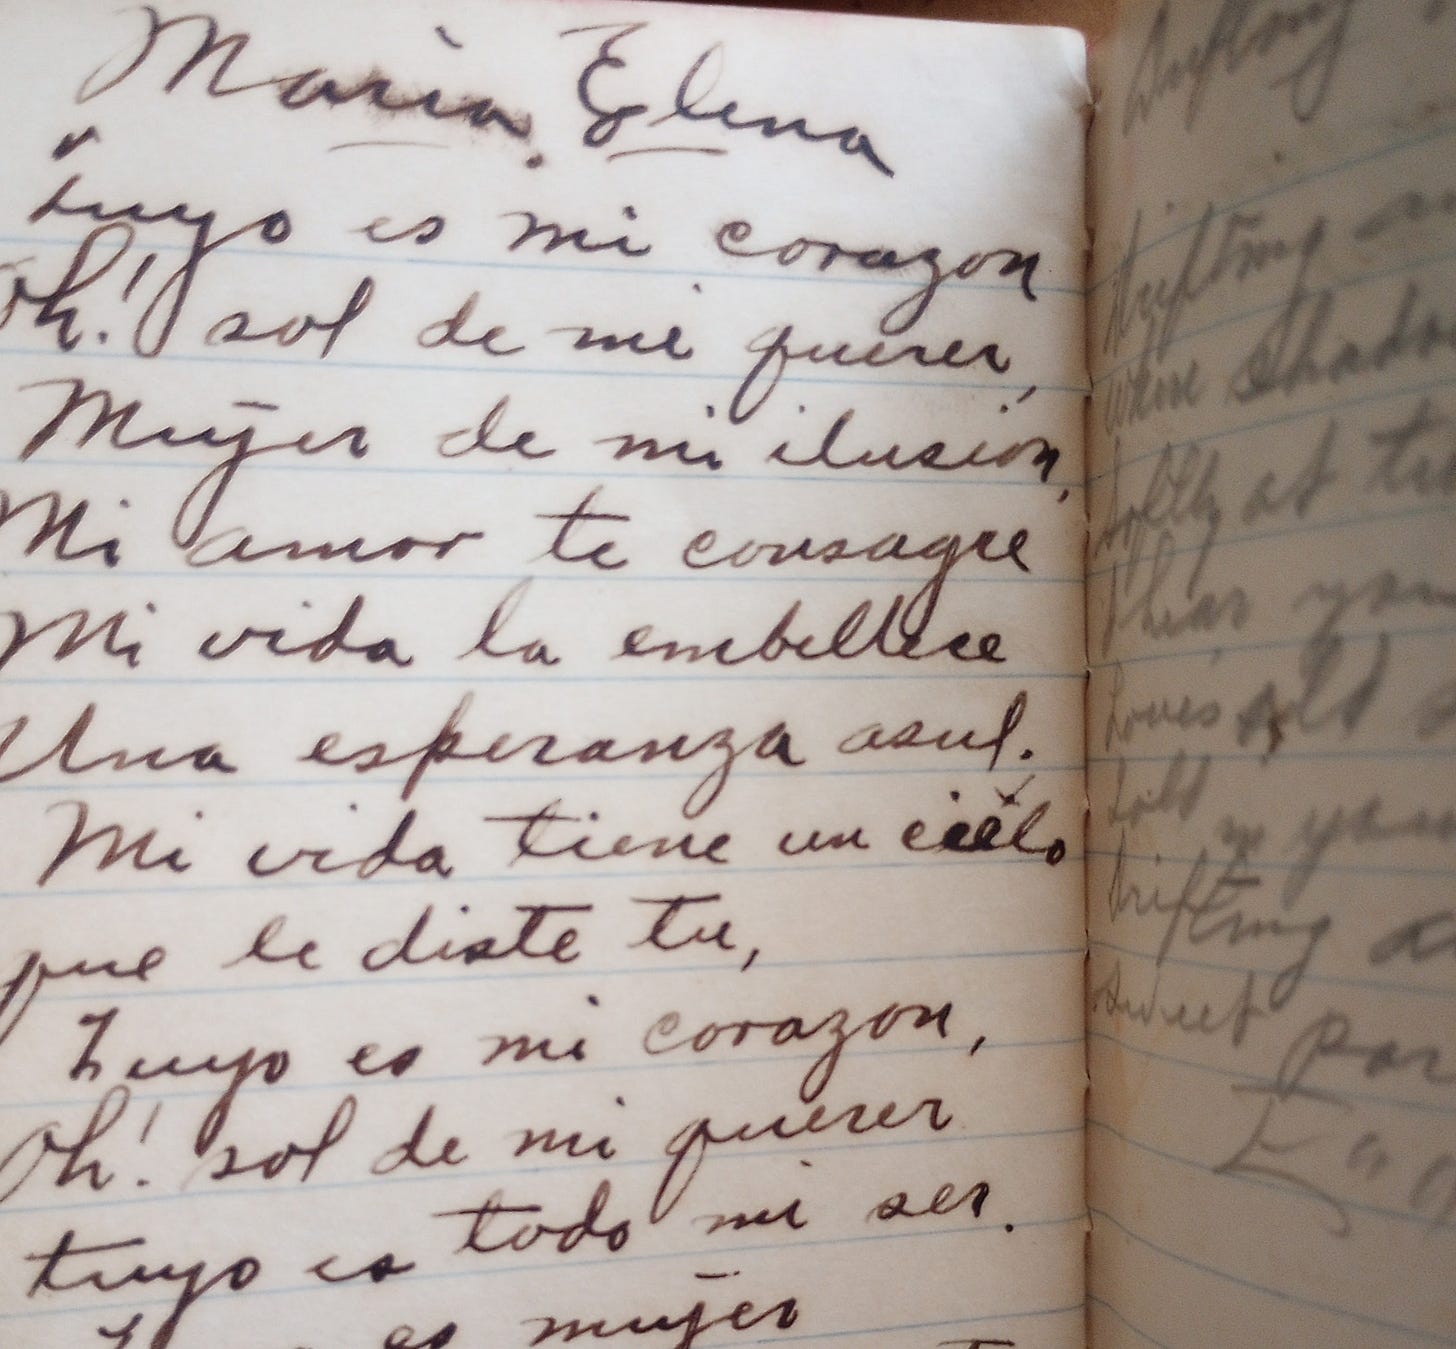 Maria Elena
"Tuyo es mi corazon
Oh! sol de mi querer,
Mujer de mi ilusión,
Mi amor te consagre
Mi vida la embellece
Una esperanza asul.
Mi vida tiene un cielo
que le diste tu,
Tuyo es mi corazon,
Oh! sol de mi querer
tuyo es todo mi ser.
es mujer
Drifting
Drifting
where
Softly at
I hear
Love's old
Told in
Drifting
sweet